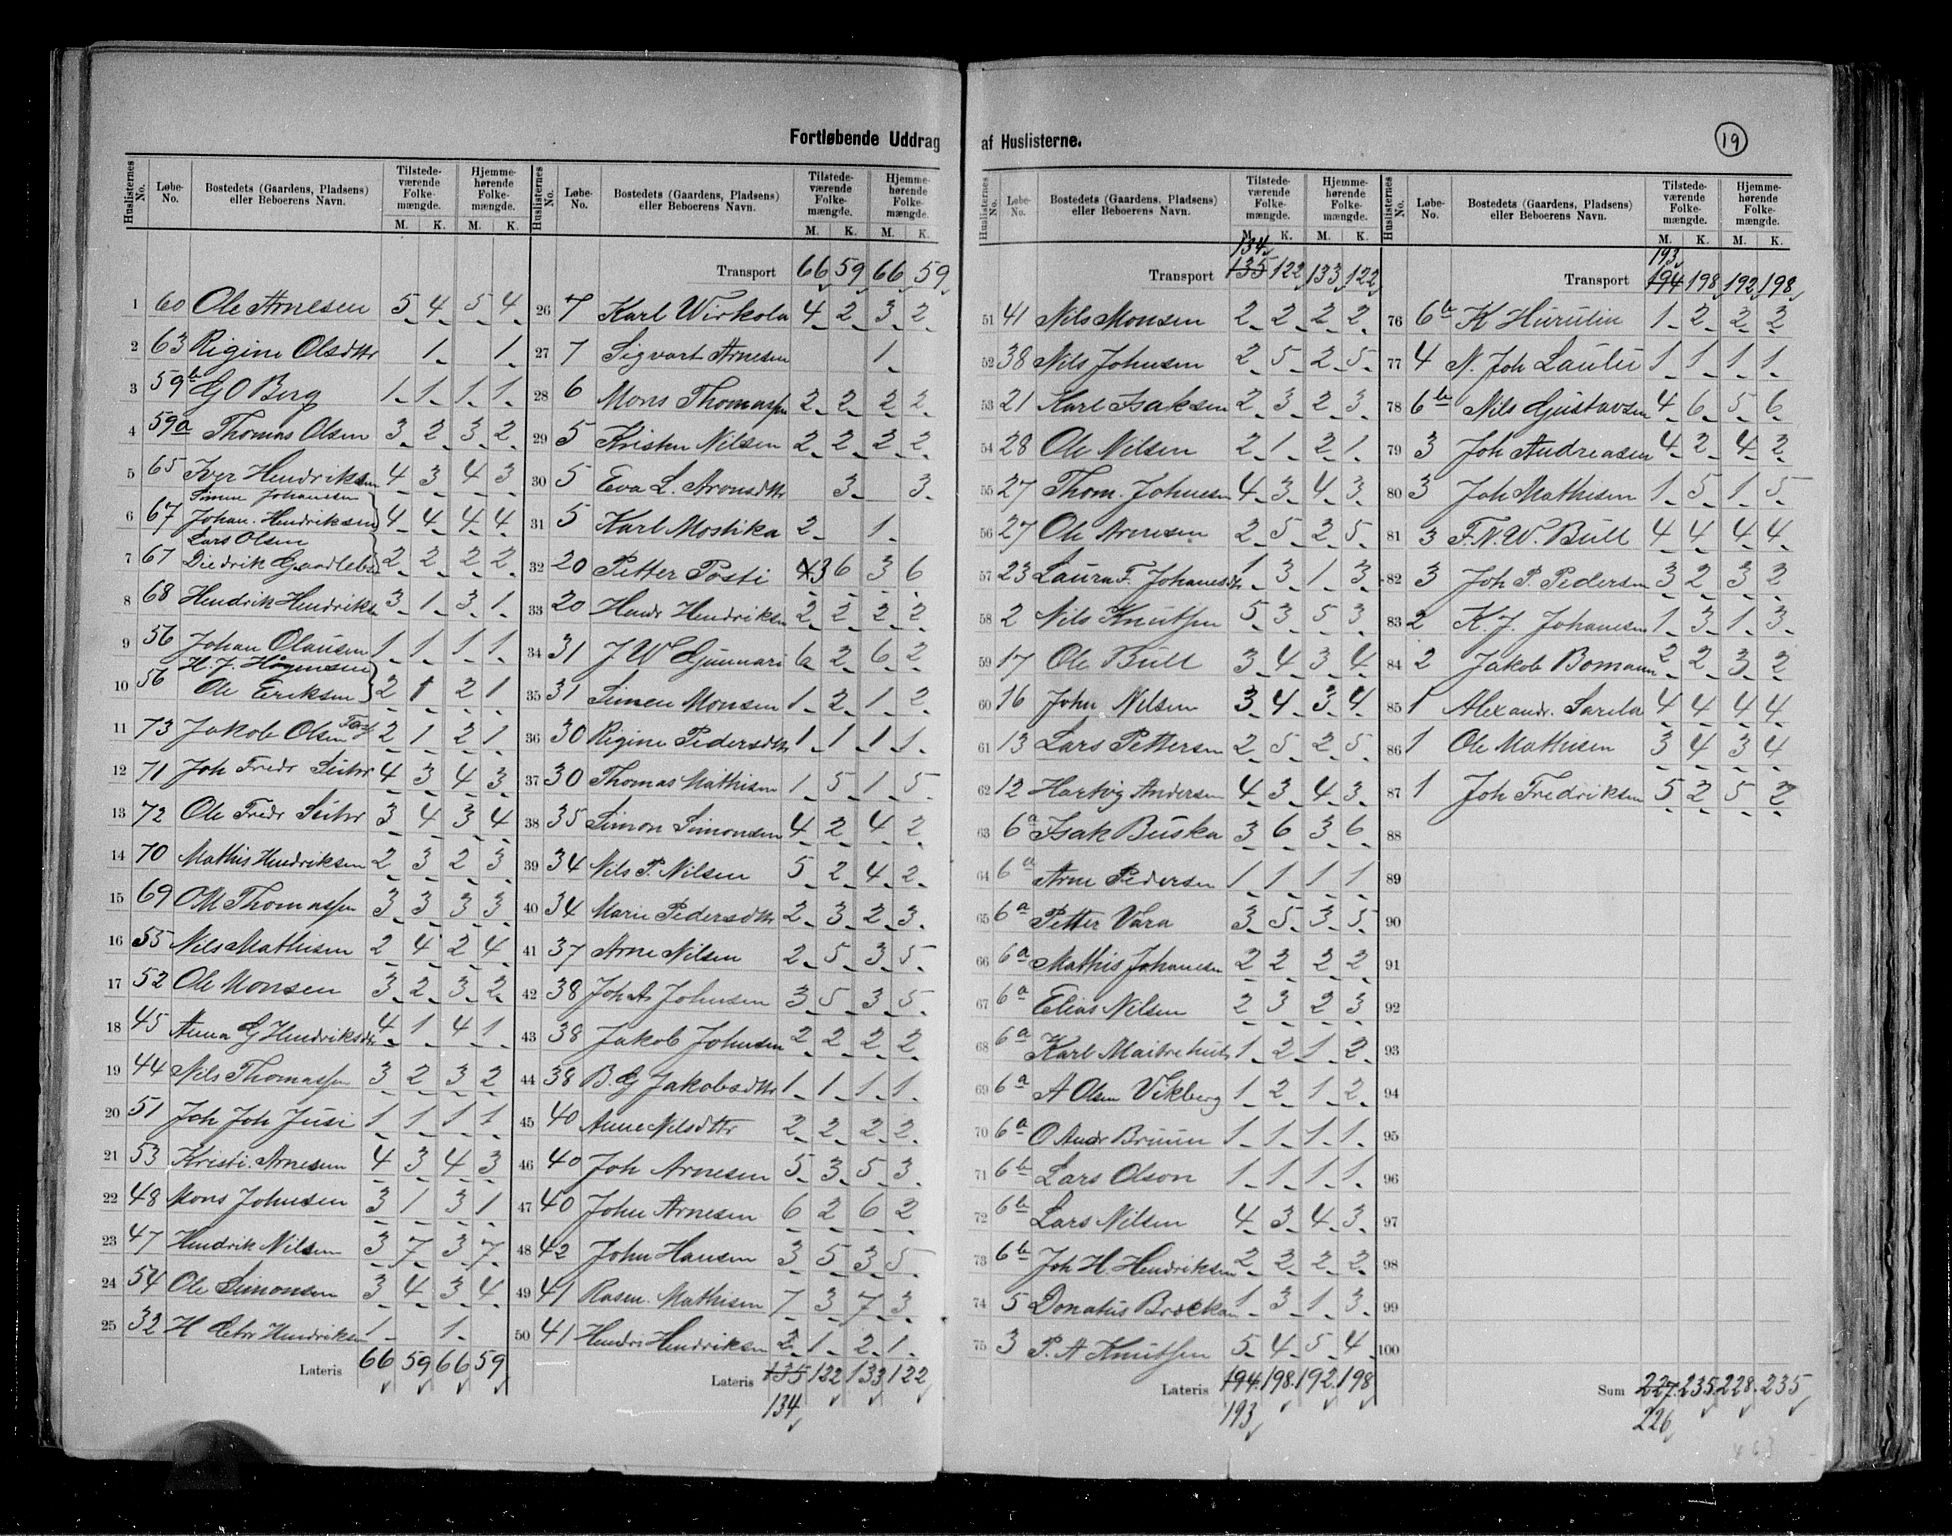 Fortløbende Uddrag af Huslisterne.
19
Huslisternes No. | Løbe-No. | Bostedets (Gaardens, Pladsens) eller Beboerens Navn. | Tilstedeværende Folkemængde. M. K. | Hjemmehørende Folkemængde. M. K.
1 60 Ole Arnesen 5 4 5 4
2 63 Regine Olsdtr 1 1
3 59b G O Berg 1 1 1 1
4 59a Thomas Olsen 3 2 3 2
5 65 Iver Hendriksen 4 3 4 3
Simen Johansen
6 67 Johan. Hendriksen 4 4 4 4
Lars Olsen
7 67 Diedrik 2 2 2 2
8 68 Hendrik Hendriksn 3 1 3 1
9 56 Johan Olausen 1 1 1 1
H. J.
10 56 Ole Eriksen 2 1 2 1
11 73 Jakob Olsen 2 1 2 1
12 71 Joh Fredr 4 3 4 3
13 72 Ole Fredr 3 4 3 4
14 70 Mathis Hendriksen 2 3 2 3
15 69 O M Thomassen 3 3 3 3
16 55 Nils Mathisen 2 4 2 4
17 52 Ole Monsen 3 2 3 2
18 45 Anna G Hendriksdtr 4 1 4 1
19 44 Nils Thomassen 3 2 3 2
20 51 Joh Joh Jusi 1 1 1 1
21 53 Kristi. Arnesen 4 3 4 3
22 48 Mons Johnsen 3 1 3 1
23 47 Hendrik Nilsen 3 7 3 7
24 54 Ole Simonsen 3 4 3 4
25 32 H Hendriksen 1 1
Lateris 66 59 66 59
Huslisternes No. | Løbe-No. | Bostedets (Gaardens, Pladsens) eller Beboerens Navn. | Tilstedeværende Folkemængde. M. K. | Hjemmehørende Folkemængde. M. K.
Transport 66 59 66 59
26 7 Karl Wirkola 4 2 3 2
27 7 Sigvart Arnesen 1
28 6 Mons Thomassen 2 2 2 2
29 5 Kristen Nilsen 2 2 2 2
30 5 Eva L. Aronsdtr 3 3
31 5 Karl Mostika 2 1
32 20 Petter Posti 4 3 6 3 6
33 20 Hendr Hendriksen 2 2 2 2
34 31 J W Gunnari 6 2 6 2
35 31 Simen Monsen 1 2 1 2
36 30 Regine Pedersdtr 1 1 1 1
37 30 Thomas Mathisen 1 5 1 5
38 35 Simon Simonsen 4 2 4 2
39 34 Nils P. Nilsen 5 2 4 2
40 34 Marie Pedersdtr 2 3 2 3
41 37 Arne Nilsen 2 5 3 5
42 38 Joh A Johnsen 3 5 3 5
43 38 Jakob Johnsen 2 2 2 2
44 38 B. G Jakobsdtr 1 1 1 1
45 40 Anne Nilsdtr 2 2 2 2
46 40 Joh Arnesen 5 3 5 3
47 40 John Arnesen 6 2 6 2
48 42 John Hansen 3 5 3 5
49 41 Rasm. Mathisen 7 3 7 3
50 41 Hendr Hendriksen 2 1 2 1
Lateris 135 122 133 122
134
Huslisternes No. | Løbe-No. | Bostedets (Gaardens, Pladsens) eller Beboerens Navn. | Tilstedeværende Folkemængde. M. K. | Hjemmehørende Folkemængde. M. K.
134
Transport 135 122 133 122
51 41 Nils Monsen 2 2 2 2
52 38 Nils Johnsen 2 5 2 5
53 21 Karl Isaksen 2 3 2 3
54 28 Ole Nilsen 2 1 2 1
55 27 Thom. Johnesen 4 3 4 3
56 27 Ole Arnesen 2 5 2 5
57 23 Laura F. Johanesdtr 1 3 1 3
58 2 Nils Knutsen 5 3 5 3
59 17 Ole Bull 3 4 3 4
60 16 John Nilsen 3 4 3 4
61 13 Lars Pettersen 2 5 2 5
62 12 Hartvig Andersen 4 3 4 3
63 6a Isak Buska 3 6 3 6
64 6a Arne Pedersen 1 1 1 1
65 6a Petter Vara 3 5 3 5
66 6a Mathis Johanesen 2 2 2 2
67 6a Elias Nilsen 2 3 2 3
68 6a Karl 1 2 1 2
69 6a A Olsen Vikberg 1 2 1 2
70 6a O Andr Bruun 1 1 1 1
71 6b Lars Olson 1 1 1 1
72 6b Lars Nilsen 4 3 4 3
73 6b Joh H. Hendriksen 2 2 2 2
74 5 Donatus 1 3 1 3
75 3 P. A Knutsen 5 4 5 4
Lateris 194 198 192 198
193
Huslisternes No. | Løbe-No. | Bostedets (Gaardens, Pladsens) eller Beboerens Navn. | Tilstedeværende Folkemængde. M. K. | Hjemmehørende Folkemængde. M. K.
193
Transport 194 198 192 198
76 6b K Hurulin 1 2 2 2
77 4 N. Joh Lauli 1 1 1 1
78 6b Nils Gustavsen 4 6 5 6
79 3 Joh Andreasen 4 2 4 2
80 3 Joh Mathisen 1 5 1 5
81 3 F. N. W. Bull 4 4 4 4
82 3 Joh P. Pedersen 3 2 3 2
83 2 K. J. Johanesen 1 3 1 3
84 2 Jakob Bomann 2 2 3 2
85 1 Alexandr. Sarela 4 4 4 4
86 1 Ole Mathisen 3 4 3 4
87 1 Joh Fredriksen 5 2 5 2
88
89
90
91
92
93
94
95
96
97
98
99
100
Sum 227 235 228 235
226
463